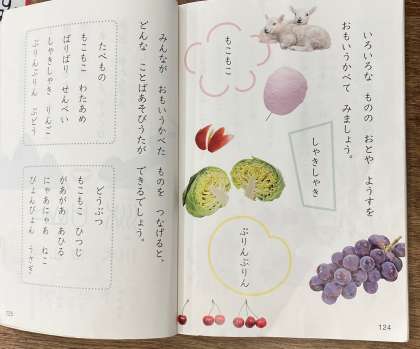 いろいろな ものの おとや ようすを
おもいうかべて みましょう。
もこもこ
しゃきしゃき
ぷりんぷりん
124
みんなが おもいうかべた ものを つなげると、
どんな ことばあそびうたが できるでしょう。
たべもの
もこもこ わたあめ
ぱりぱり せんべい
しゃきしゃき りんご
ぷりんぷりん ぶどう
どうぶつ
もこもこ ひつじ
があがあ あひる
にゃあにゃあ ねこ
ぴょんぴょん うさぎ
125